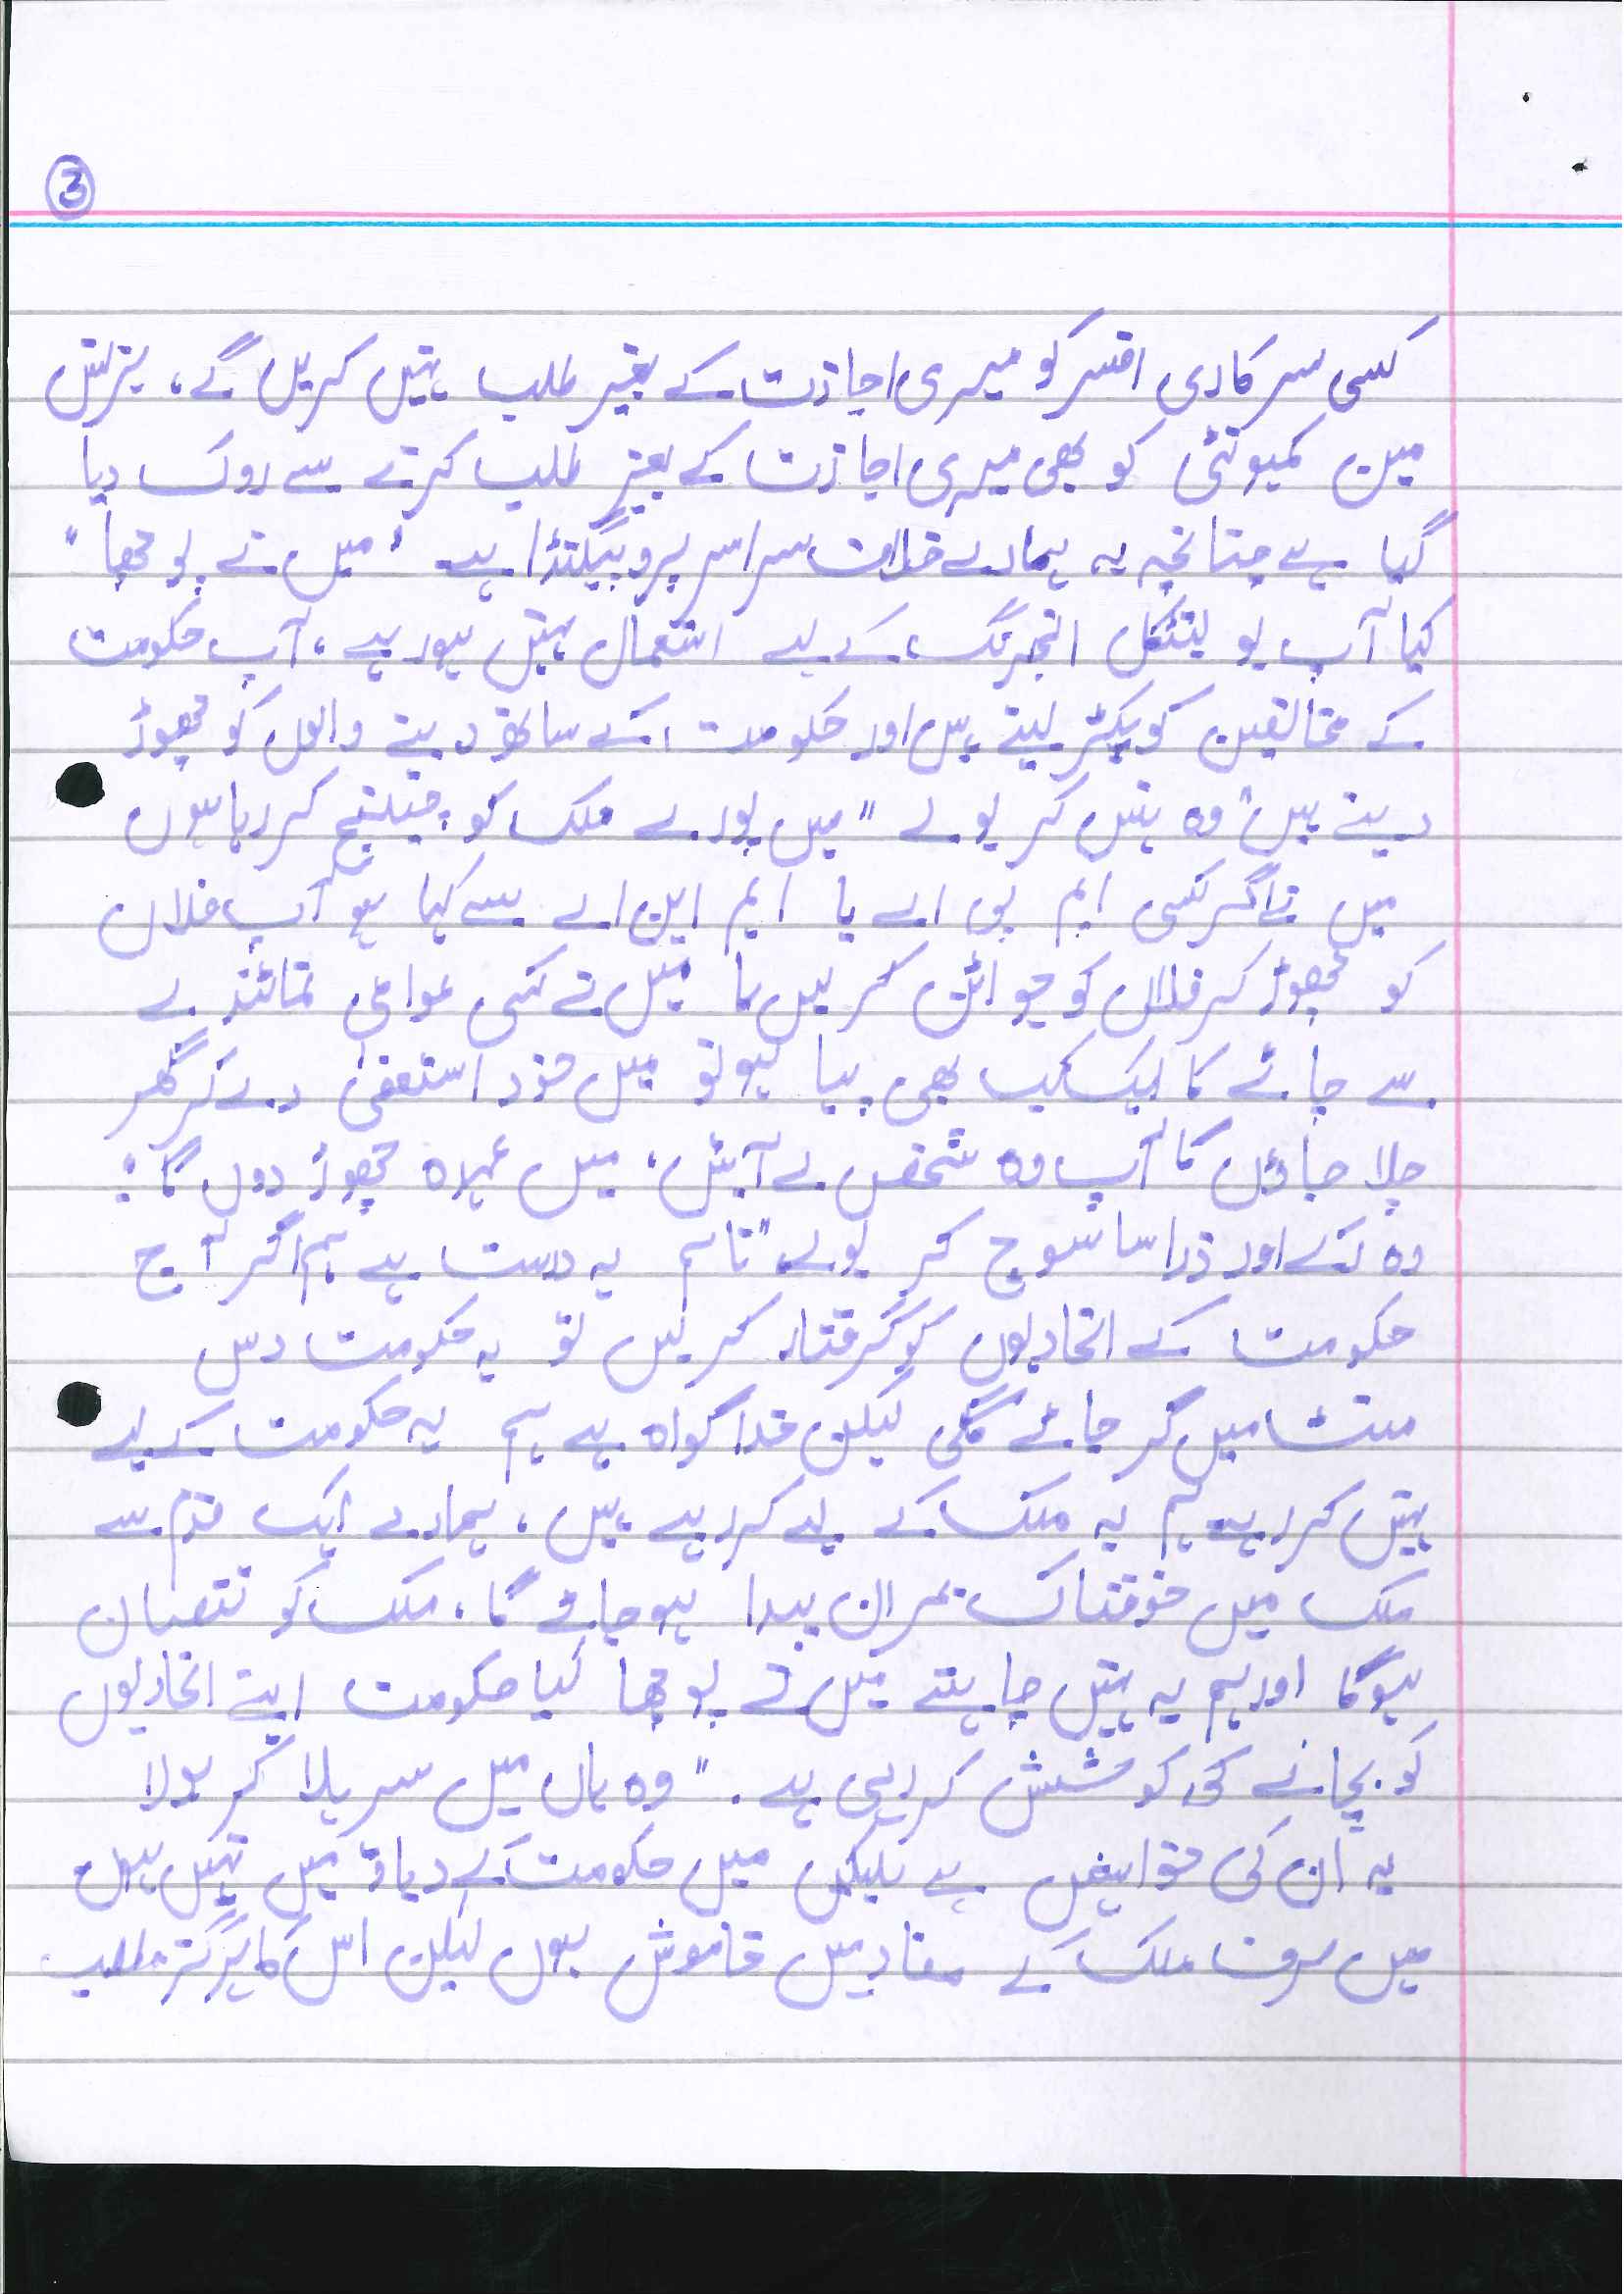 3
کسی سرکاری افسر کو میری اجازت کے بغیر طلب نہیں کریں گے، بزنس
مین کمیونٹی کو بھی میری اجازت کے بغیر طلب کرنے سے روک دیا
گیا ہے چنانچہ یہ ہمارے خلاف سراسر پروپیگنڈا ہے "میں نے پوچھا"
کیا آپ پولیٹکل انجیرنگ کے لیے استعمال نہیں ہورہے، آپ حکومت
کے مخالفین کو پکڑ لیتے ہیں اور حکومت کے ساتھ دینے والوں کو چھوڑ
دیتے ہیں" وہ ہنس کر بولے "میں پورے ملک کو چیلنج کررہا ہوں
میں نے اگر کسی ایم پی اے یا ایم این اے سے کہا ہو آپ فلاں
کو چھوڑ کر فلاں کو جوائن کرلیں یا میں نے کسی عوامی نمائندے
سے چائے کا ایک کپ بھی پیا ہو تو میں خود استعفیٰ دے کر گھر
چلا جاؤں گا آپ وہ شخص لے آئیں، میں عہدہ چھوڑ دوں گا"
وہ رکے اور ذرا سا سوچ کر بولے "تاہم یہ درست ہے ہم اگر آج
حکومت کے اتحادیوں کو گرفتار کرلیں تو یہ حکومت دس
منٹ میں گر جائے گی لیکن خدا گواہ ہے ہم یہ حکومت کے لیے
نہیں کررہے ہم یہ ملک کے لیے کررہے ہیں، ہمارے ایک قدم سے
ملک میں خوفناک بحران پیدا ہوجائے گا، ملک کو نقصان
ہوگا اور ہم یہ نہیں چاہتے میں نے پوچھا کیا حکومت اپنے اتحادیوں
کو بچانے کی کوشش کررہی ہے۔" وہ ہاں میں سر ہلا کر بولا
یہ ان کی خواہش ہے لیکن میں حکومت کے دباؤ میں نہیں ہوں
میں صرف ملک کے مفاد میں خاموش ہوں لیکن اس کا ہرگز مطلب